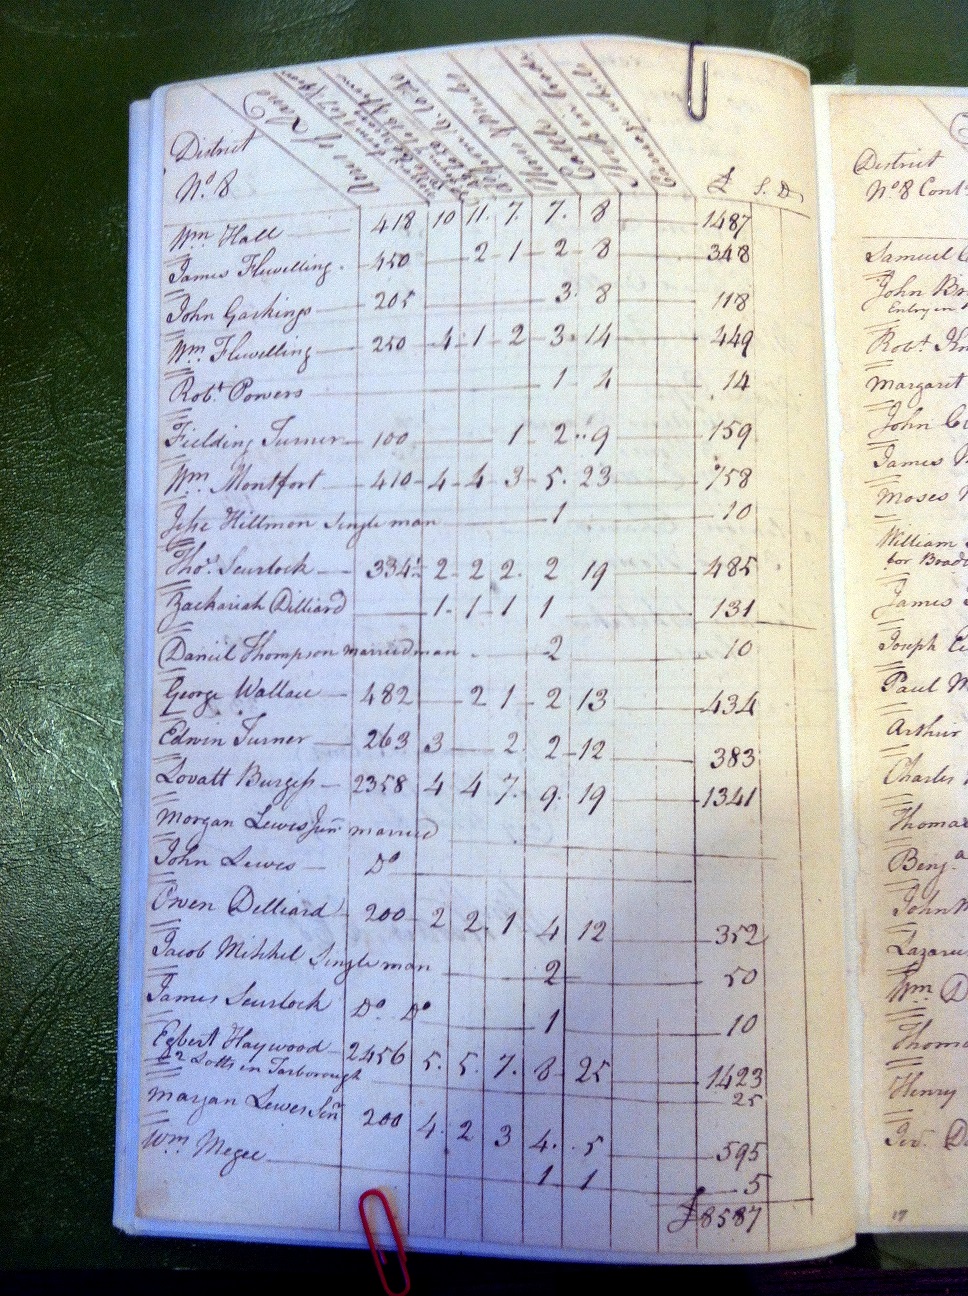 District
No. 8
Acres of Land
£ S. D.
Wm Hall 418 10 11. 7. 7. 8 1487
James Flewelling. 450 2 1 2 8 348
John Gaskings 205 3. 8 118
Wm Flewelling 250 4 1 2 3. 14 449
Robt Powers 1 4 14
Fielding Turner 100 1 2 9 159
Wm Montfort 410 4 4 3 5. 23 758
Jesse Hillmon Single man 1 10
Thos. Scurlock 334 2 2 2. 2 19 485
Zachariah Dilliard 1 1 1 1 131
Daniel Thompson married man 2 10
George Wallace 482 2 1 2 13 434
Edwin Turner 263 3 2. 2 12 383
Lovatt Burgess 2358 4 4 7. 9. 19 1341
Morgan Lewes Junr married
John Lewes Do
Owen Delliard 200 2 2 1 4 12 352
Jacob Mithhel Single man 2 50
James Scurlock Do. Do 1 10
Egbert Haywood 2456 5. 5. 7. 8 25 1423
2 Lotts in Tarborough 25
Morgan Lewes Senr 200 4. 2 3 4. 5 595
Wm Megee 1 1 5
£8587
District
No. 8 Cont.
Samuel
John
Entry in
Robt
Margaret
John
James
Moses
William
for
James
Joseph
Paul
Arthur
Charles
Thomas
Benj.a
John
Lazarus
Wm
Thoma
Henry
19